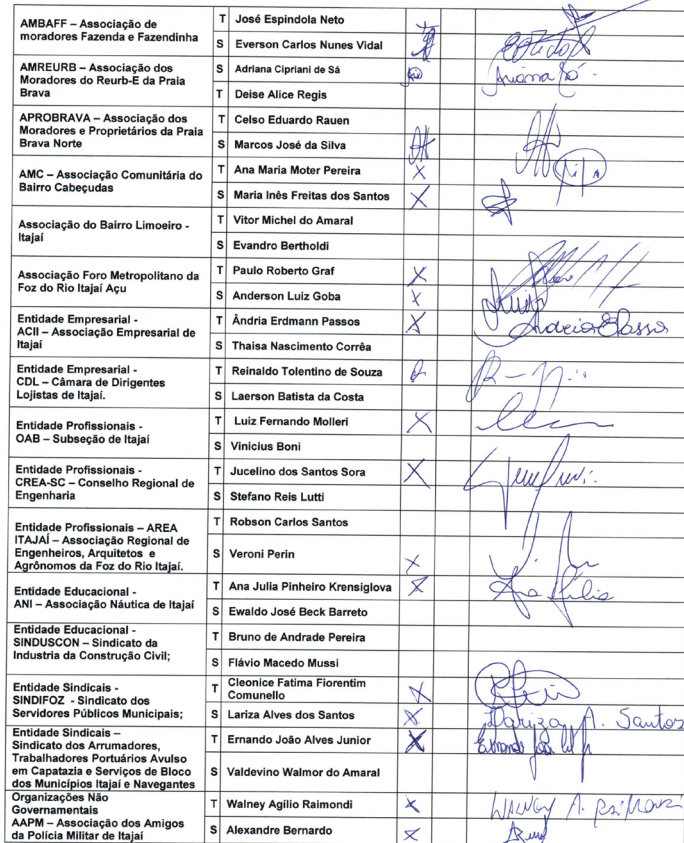 AMBAFF – Associação de
moradores Fazenda e Fazendinha
T José Espindola Neto
S Everson Carlos Nunes Vidal
AMREURB – Associação dos
Moradores do Reurb-E da Praia
Brava
S Adriana Cipriani de Sá
T Deise Alice Regis
APROBRAVA – Associação dos
Moradores e Proprietários da Praia
Brava Norte
T Celso Eduardo Rauen
S Marcos José da Silva
AMC – Associação Comunitária do
Bairro Cabeçudas
T Ana Maria Moter Pereira X
S Maria Inês Freitas dos Santos X
Associação do Bairro Limoeiro -
Itajaí
T Vitor Michel do Amaral
S Evandro Bertholdi
Associação Foro Metropolitano da
Foz do Rio Itajaí Açu
T Paulo Roberto Graf X
S Anderson Luiz Goba X
Entidade Empresarial -
ACII – Associação Empresarial de
Itajaí
T Ândria Erdmann Passos X
S Thaisa Nascimento Corrêa
Entidade Empresarial -
CDL – Câmara de Dirigentes
Lojistas de Itajaí.
T Reinaldo Tolentino de Souza
S Laerson Batista da Costa
Entidade Profissionais -
OAB – Subseção de Itajaí
T Luiz Fernando Molleri X
S Vinicius Boni
Entidade Profissionais -
CREA-SC – Conselho Regional de
Engenharia
T Jucelino dos Santos Sora X
S Stefano Reis Lutti
Entidade Profissionais – AREA
ITAJAÍ – Associação Regional de
Engenheiros, Arquitetos e
Agrônomos da Foz do Rio Itajaí.
T Robson Carlos Santos
S Veroni Perin X
Entidade Educacional -
ANI – Associação Náutica de Itajaí
T Ana Julia Pinheiro Krensiglova X Ana Júlia
S Ewaldo José Beck Barreto
Entidade Educacional -
SINDUSCON – Sindicato da
Industria da Construção Civil;
T Bruno de Andrade Pereira
S Flávio Macedo Mussi
Entidade Sindicais -
SINDIFOZ - Sindicato dos
Servidores Públicos Municipais;
T Cleonice Fatima Fiorentim
Comunello X
S Lariza Alves dos Santos X Lariza A. Santos
Entidade Sindicais –
Sindicato dos Arrumadores,
Trabalhadores Portuários Avulso
em Capatazia e Serviços de Bloco
dos Municípios Itajaí e Navegantes
T Ernando João Alves Junior X
S Valdevino Walmor do Amaral
Organizações Não
Governamentais
AAPM – Associação dos Amigos
da Polícia Militar de Itajaí
T Walney Agílio Raimondi X
S Alexandre Bernardo X